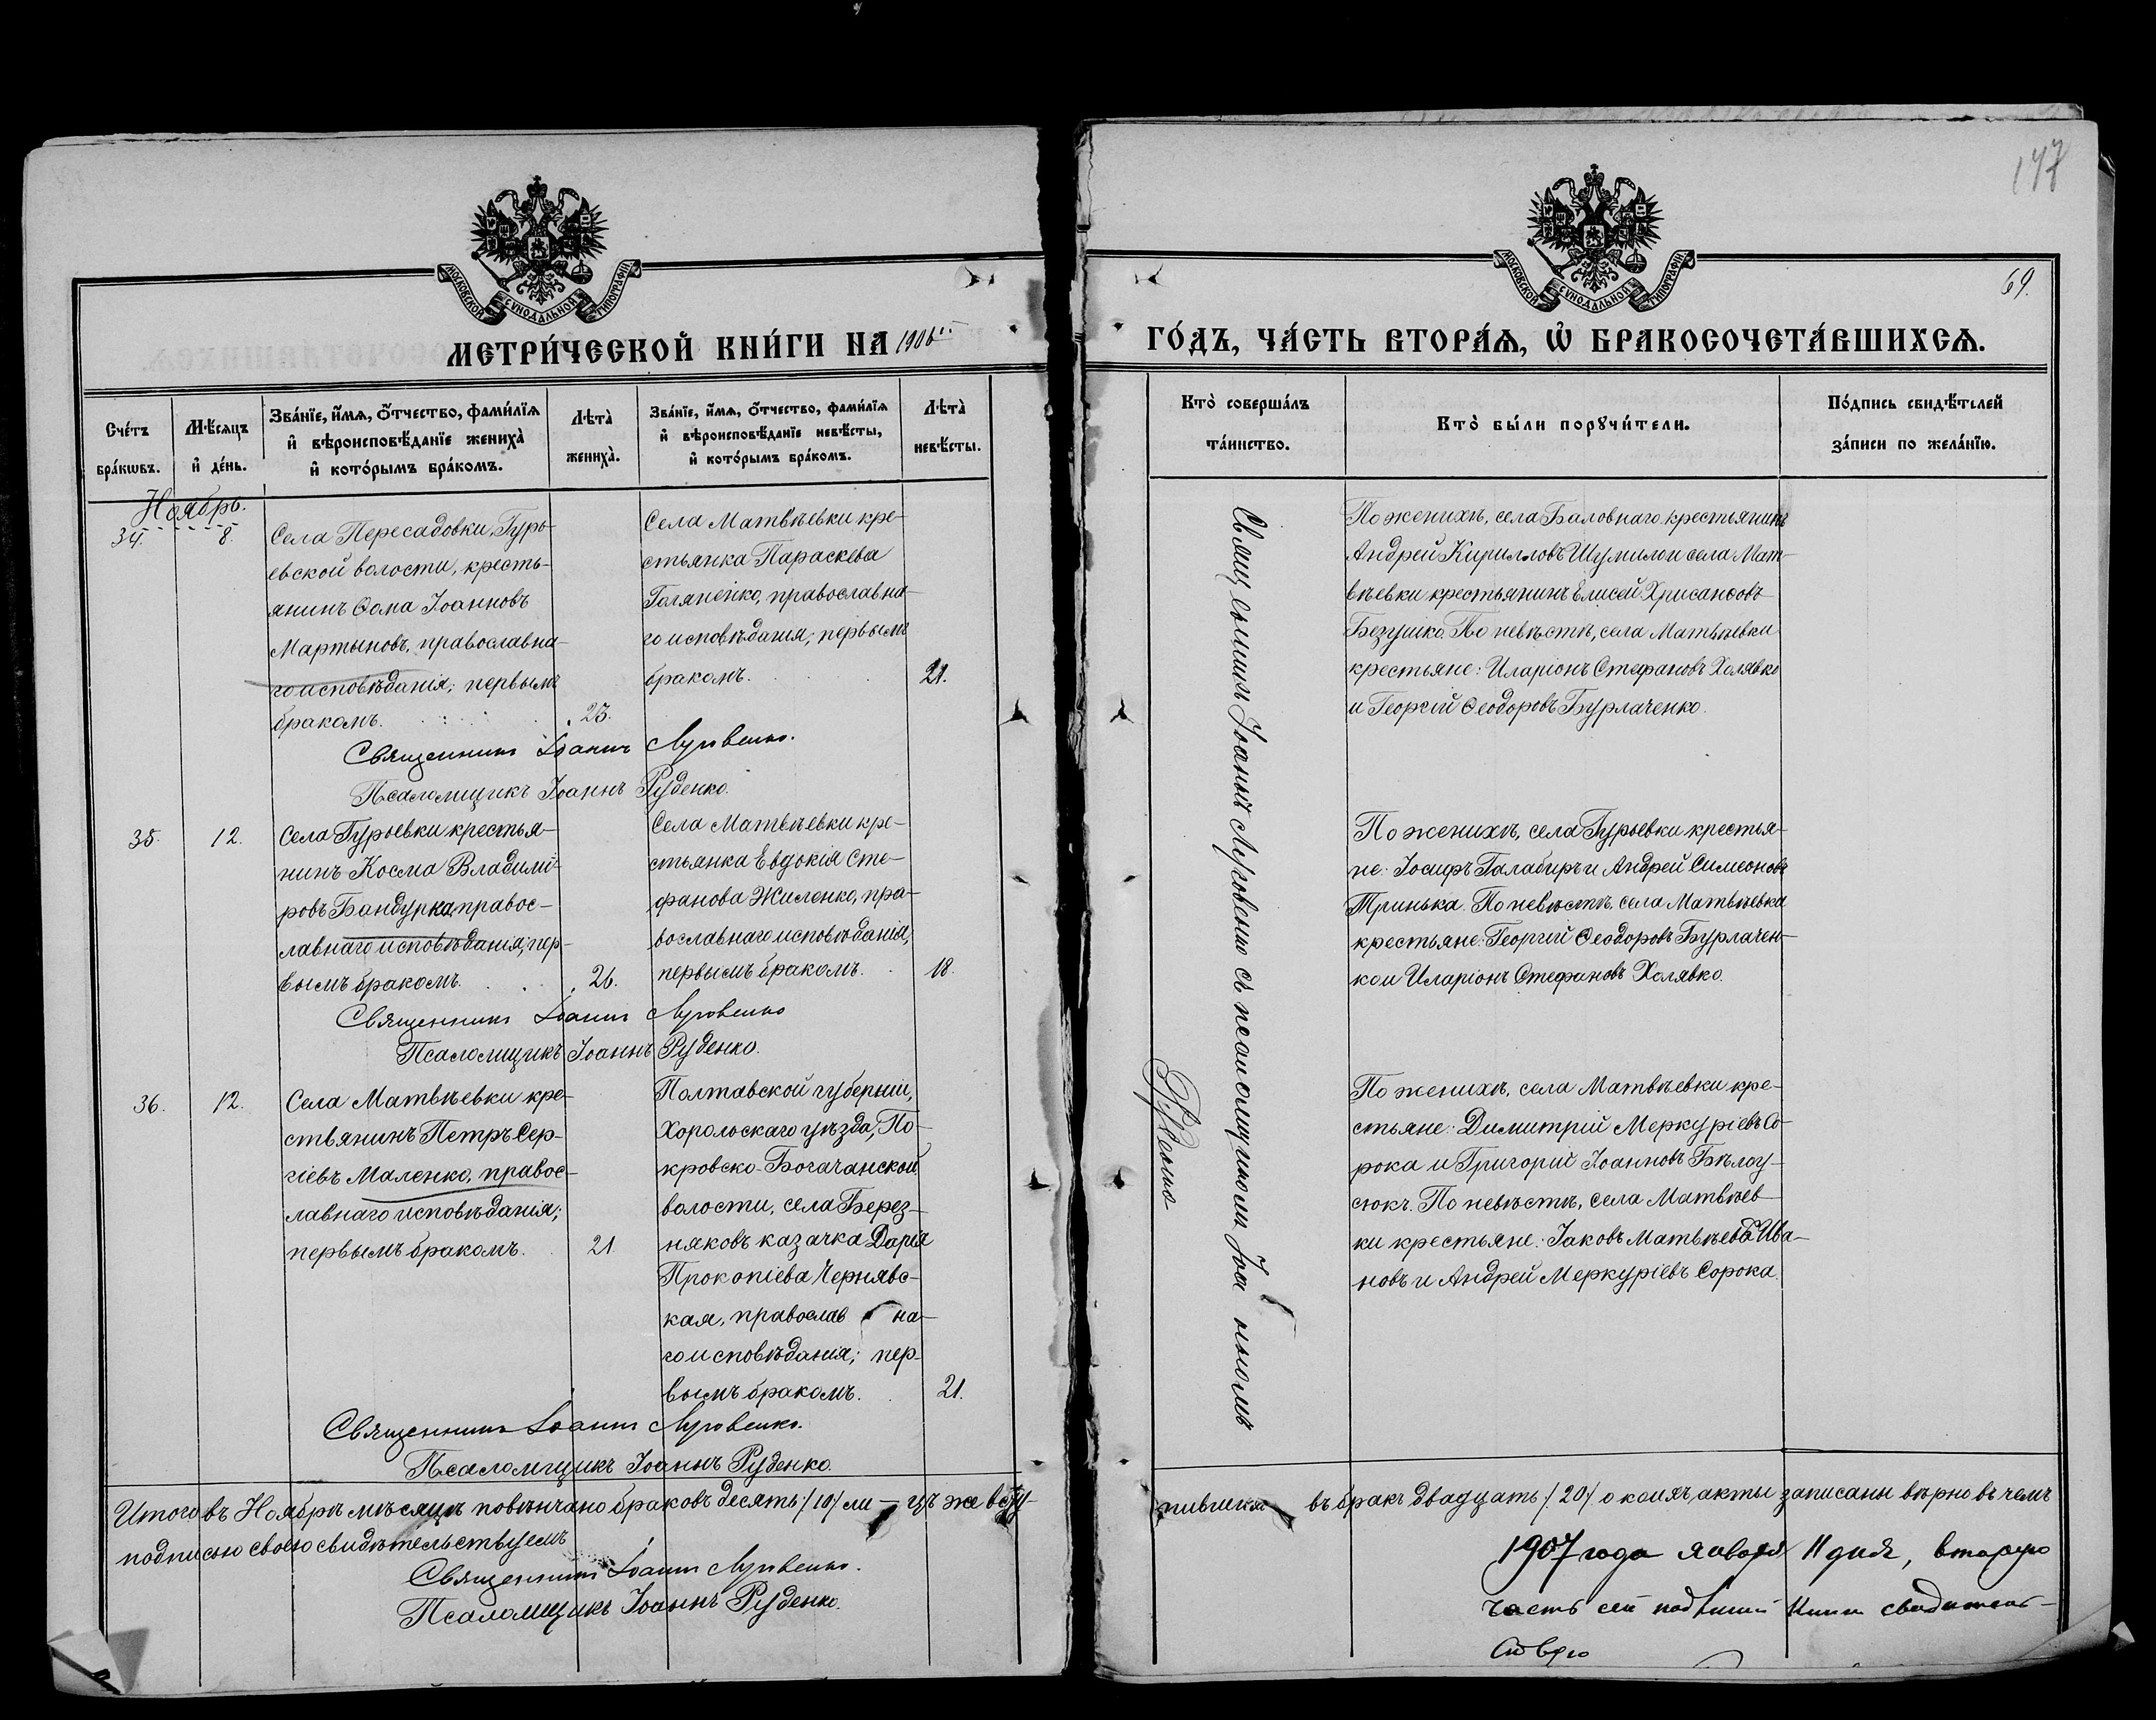 177
69.
МОСКОВСКОЙ СѴНОДАЛЬНОЙ ТИПОГРАФІИ
МОСКОВСКОЙ СѴНОДАЛЬНОЙ ТИПОГРАФІИ
МЕТРИ́ЧЕСКОЙ КНИ́ГИ НА 1906
ГО́ДЪ, ЧА́СТЬ ВТОРА́Ѧ, Ѡ҆ БРАКОСОЧЕТА́ВШИХСѦ.
Сче́тъ
бра́кѡвъ.
Мѣ́сѧцъ
и҆ де́нь.
Зва́нїе, и҆́мѧ, ѻ҆́тчество, фами́лїѧ
и҆ вѣроисповѣ́данїе жениха̀
и҆ кото́рымъ бра́комъ.
Лѣта̀
жениха̀.
Зва́нїе, и҆́мѧ, ѻ҆́тчество, фами́лїѧ
и҆ вѣроисповѣ́данїе невѣ́сты,
и҆ кото́рымъ бра́комъ.
Лѣта̀
невѣ́сты.
Кто̀ соверша́лъ
та́инство.
Кто̀ бы́ли порꙋчи́тели.
По́дпись свидѣ́телей
за́писи по жела́нїю.
Ноябрь.
34.
8.
Села Пересадовки, Гурь-
евской волости, кресть-
янинъ Ѳома Іоанновъ
Мартыновъ, православна-
го исповѣданія; первымъ
бракомъ.
25.
Села Матвѣевки кре-
стьянка Параскева
Голяненко, православна-
го исповѣданія; первымъ
бракомъ.
21.
По женихѣ, села Баловнаго крестьянинъ
Андрей Кирилловъ Шумило и села Мат-
вѣевки крестьянинъ Елисей Хрисанѳовъ
Безушко. По невѣстѣ, села Матвѣевки
крестьяне: Иларіонъ Стефановъ Холявко
и Георгій Ѳеодоровъ Бурлаченко.
Священникъ Іоаннъ
Псаломщикъ Іоаннъ Руденко.
35.
12.
Села Гурьевки крестья-
нинъ Косма Владимі-
ровъ Бандурка, правос-
лавнаго исповѣданія; пер-
вымъ бракомъ.
26.
Села Матвѣевки кре-
стьянка Евдокія Сте-
фанова Жиленко, пра-
вославнаго исповѣданія;
первымъ бракомъ.
18.
По женихѣ, села Гурьевки крестья-
не: Іосифъ Галабиръ и Андрей Симеоновъ
Тринька. По невѣстѣ, села Матвѣевка
крестьяне: Георгій Ѳеодоровъ Бурлачен-
ко и Иларіонъ Стефановъ Холявко.
Священникъ Іоаннъ
Псаломщикъ Іоаннъ Руденко.
36.
12.
Села Матвѣевки кре-
стьянинъ Петръ Сер-
гіевъ Маленко, правос-
лавнаго исповѣданія;
первымъ бракомъ.
21
Полтавской губерніи,
Хорольскаго уѣзда, По-
кровско-Богачанской
волости, села Берез-
няковъ казачка Дарія
Прокопіева Чернявс-
кая, православ на-
го исповѣданія; пер-
вымъ бракомъ.
21.
По женихѣ, села Матвѣевки кре-
стьяне: Димитрій Меркуріевъ Со-
рока и Григорій Іоанновъ Бѣлоу-
сюкъ. По невѣстѣ, села Матвѣев-
ки крестьяне: Іаковъ Матвѣевъ Ива-
новъ и Андрей Меркуріевъ Сорока.
Священникъ Іоаннъ
Псаломщикъ Іоаннъ Руденко.
съ псаломщикомъ
Руденко
Итого въ Ноябрѣ мѣсяцѣ повѣнчано браковъ десять /10/ ли-цъ же всту-
пившихъ въ бракъ двадцать /20/ о коихъ акты записаны вѣрно въ чемъ
подписью своею свидѣтельствуемъ
Священникъ Іоаннъ
Псаломщикъ Іоаннъ Руденко.
1907 года января 11 дня, вторую
часть сей книги свидѣтель-
ствую